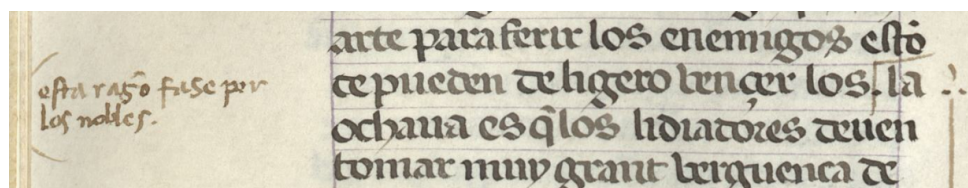 esta razõ fase por
los nobles.
arte para ferir los enemigos estõ
çe pueden de ligero vençer los. la
ochaua es q̃ los lidiadores deuen
tomar muy grant verguença de